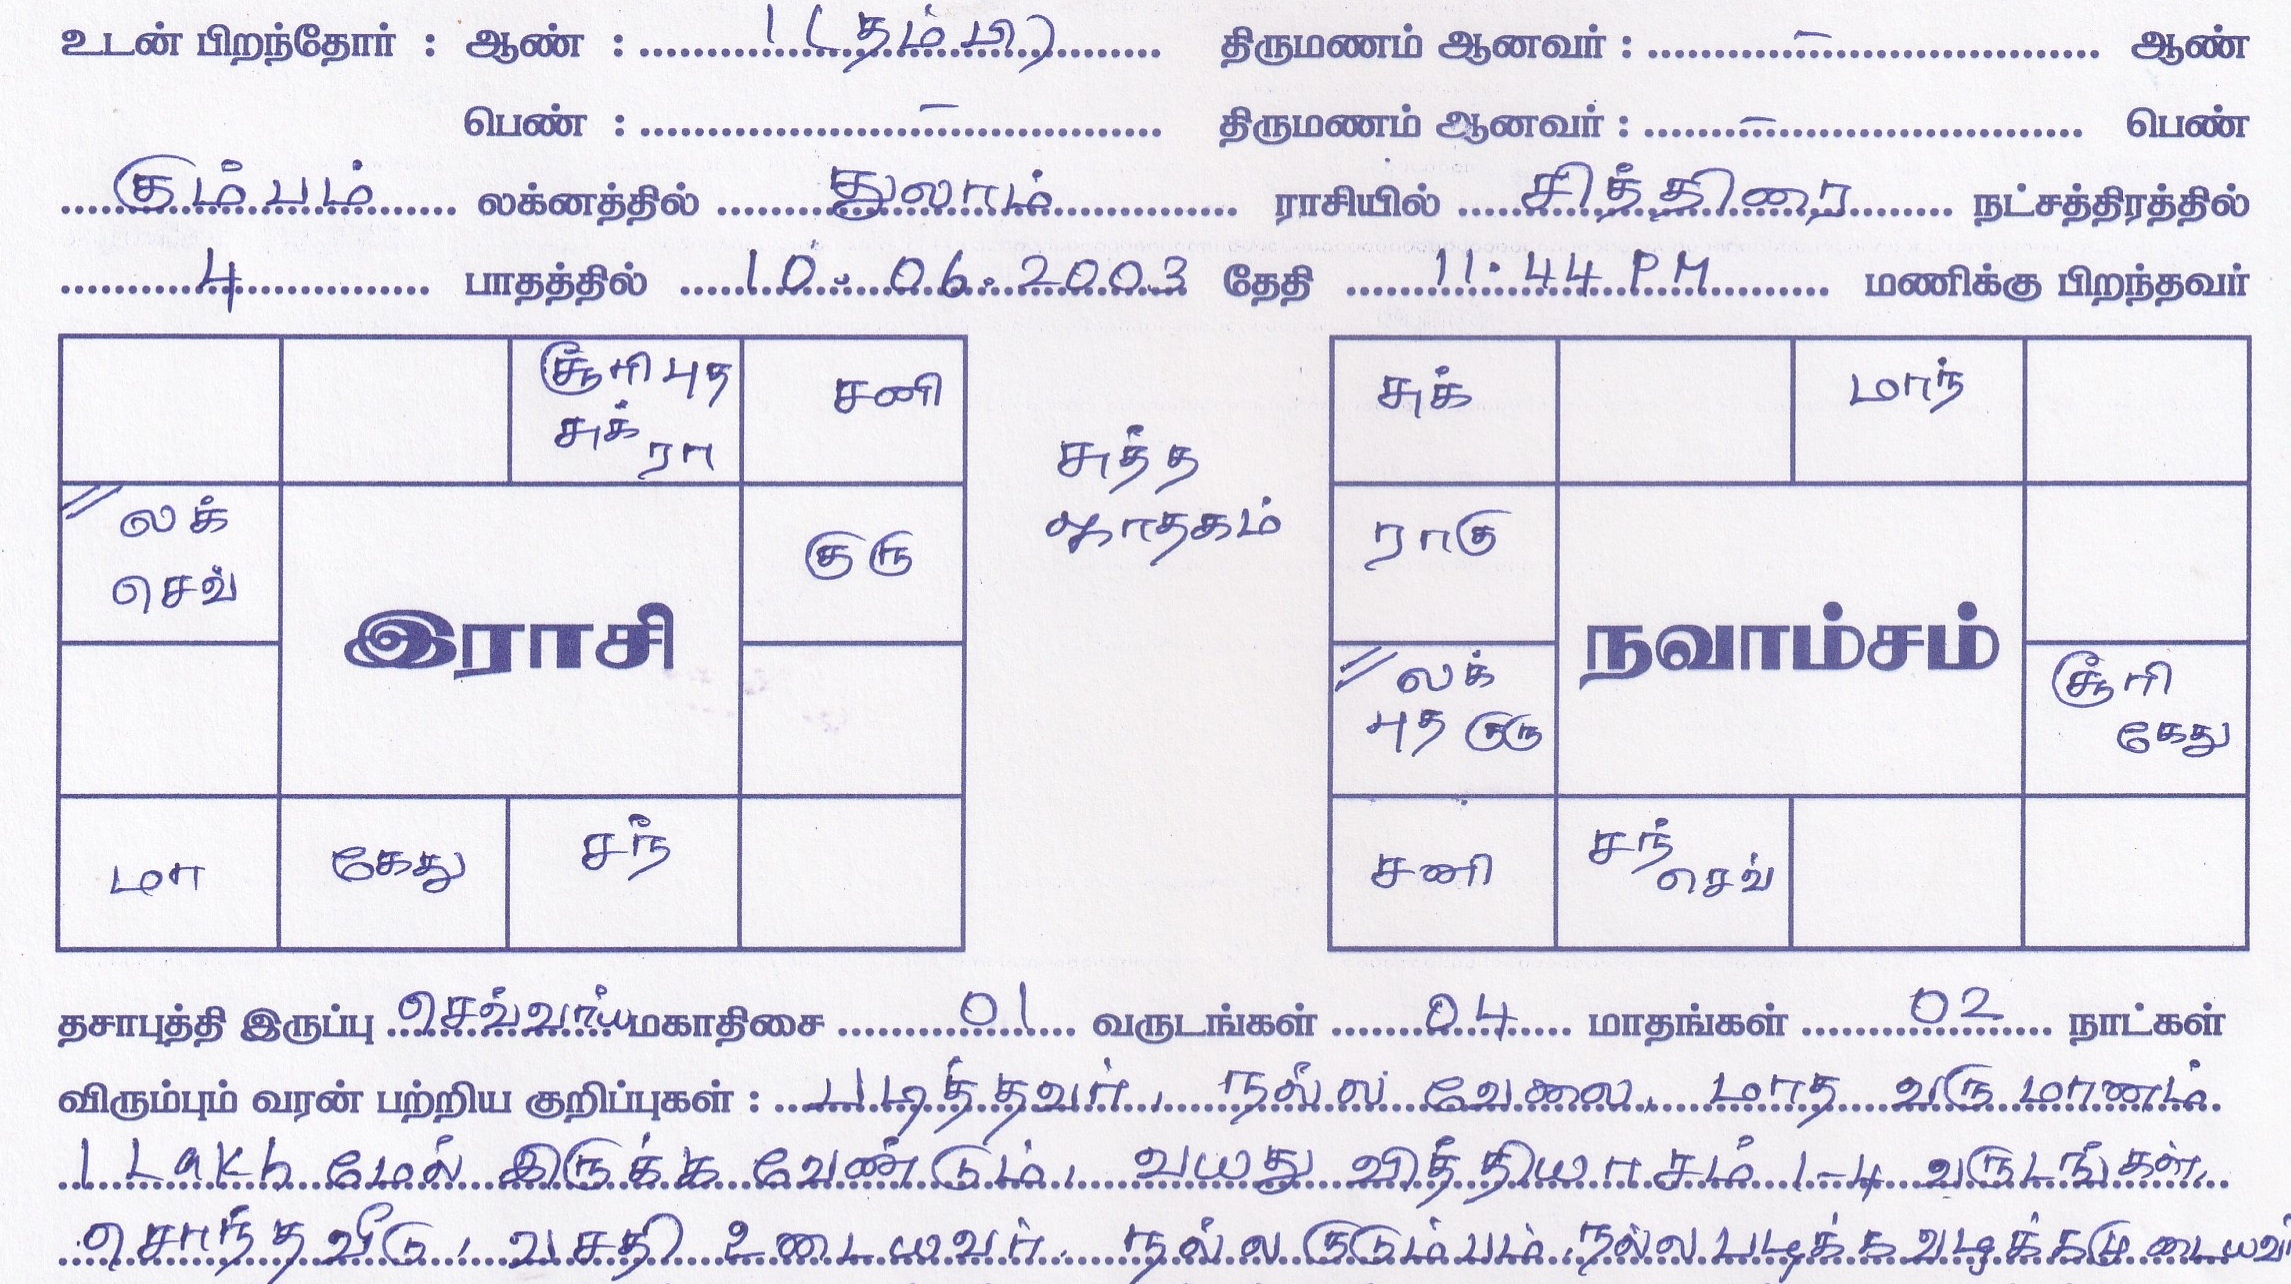 உடன் பிறந்தோர் : ஆண் : 1 (தம்பி) திருமணம் ஆனவர் : – ஆண்
பெண் : – திருமணம் ஆனவர் : – பெண்
கும்பம் லக்னத்தில் துலாம் ராசியில் சித்திரை நட்சத்திரத்தில்
4 பாதத்தில் 10.06.2003 தேதி 11.44 PM மணிக்கு பிறந்தவர்
சூரி புத
சுக் ரா
சனி
லக்
செவ்
குரு
இராசி
மா
கேது
சந்
சுத்த
ஜாதகம்
சுக்
மாந்
ராகு
நவாம்சம்
லக்
புத குரு
சூரி
கேது
சனி
சந்
செவ்
தசாபுத்தி இருப்பு செவ்வாய் மகாதிசை 01 வருடங்கள் 04 மாதங்கள் 02 நாட்கள்
விரும்பும் வரன் பற்றிய குறிப்புகள் : படித்தவர், நல்ல வேலை, மாத வருமானம்
1 Lakh மேல் இருக்க வேண்டும், வயது வித்தியாசம் 1-4 வருடங்கள்,
சொந்த வீடு, வசதி உடையவர், நல்ல குடும்பம், நல்ல படிக்க வழக்கமுடையவர்